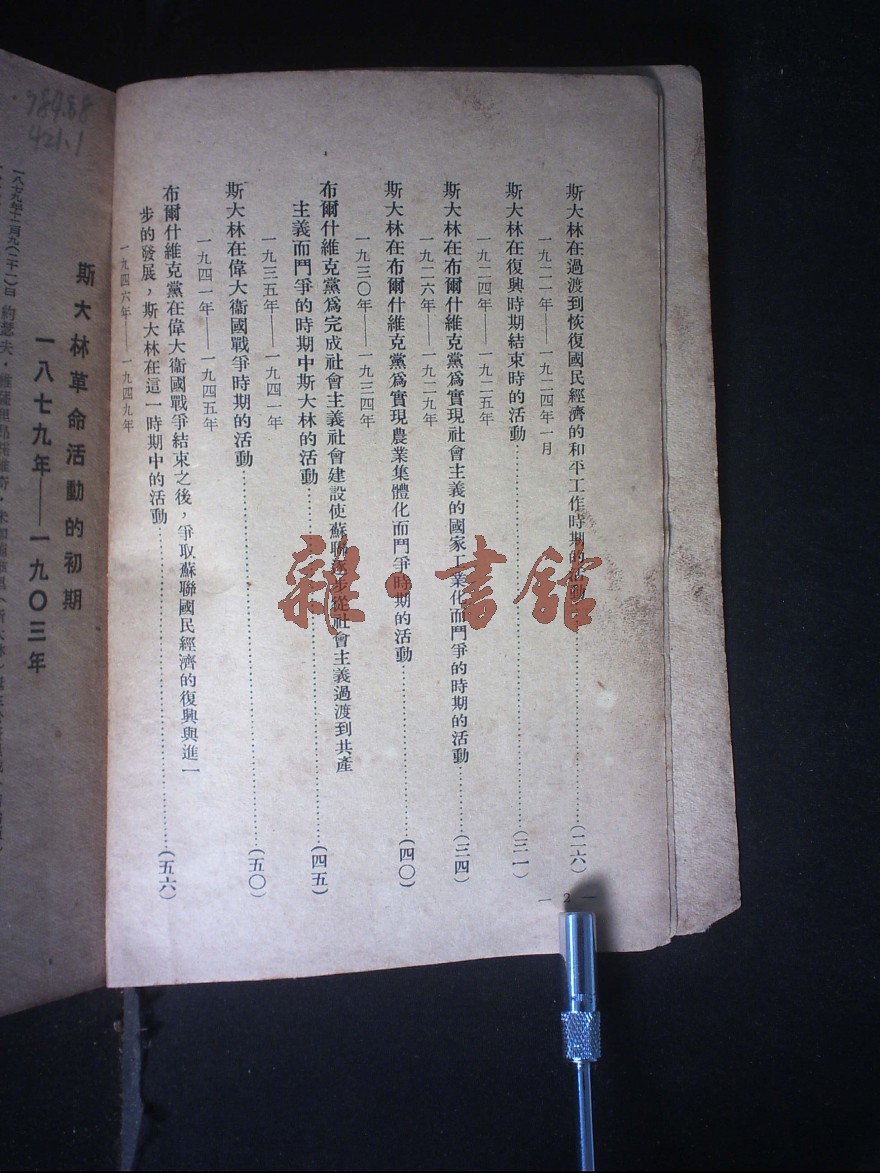 斯大林在過渡到恢復國民經濟的和平工作時期的活動……(二六)
一九二一年——一九二四年一月
斯大林在復興時期結束時的活動……(三一)
一九二四年——一九二五年
斯大林在布爾什維克黨爲實現社會主義的國家工業化而鬥爭的時期的活動……(三四)
一九二六年——一九二九年
斯大林在布爾什維克黨爲實現農業集體化而鬥爭時期的活動……(四〇)
一九三〇年——一九三四年
布爾什維克黨爲完成社會主義社會建設使蘇聯逐步從社會主義過渡到共產
主義而鬥爭的時期中斯大林的活動……(四五)
一九三五年——一九四一年
斯大林在偉大衞國戰爭時期的活動……(五〇)
一九四一年——一九四五年
布爾什維克黨在偉大衞國戰爭結束之後,爭取蘇聯國民經濟的復興與進一
步的發展,斯大林在這一時期中的活動……(五六)
一九四六年——一九四九年
— 2 —
984.88
421.1
斯大林革命活動的初期
一八七九年——一九〇三年
一八七九年十二月九(二十一)日 約瑟夫,
雜·書館